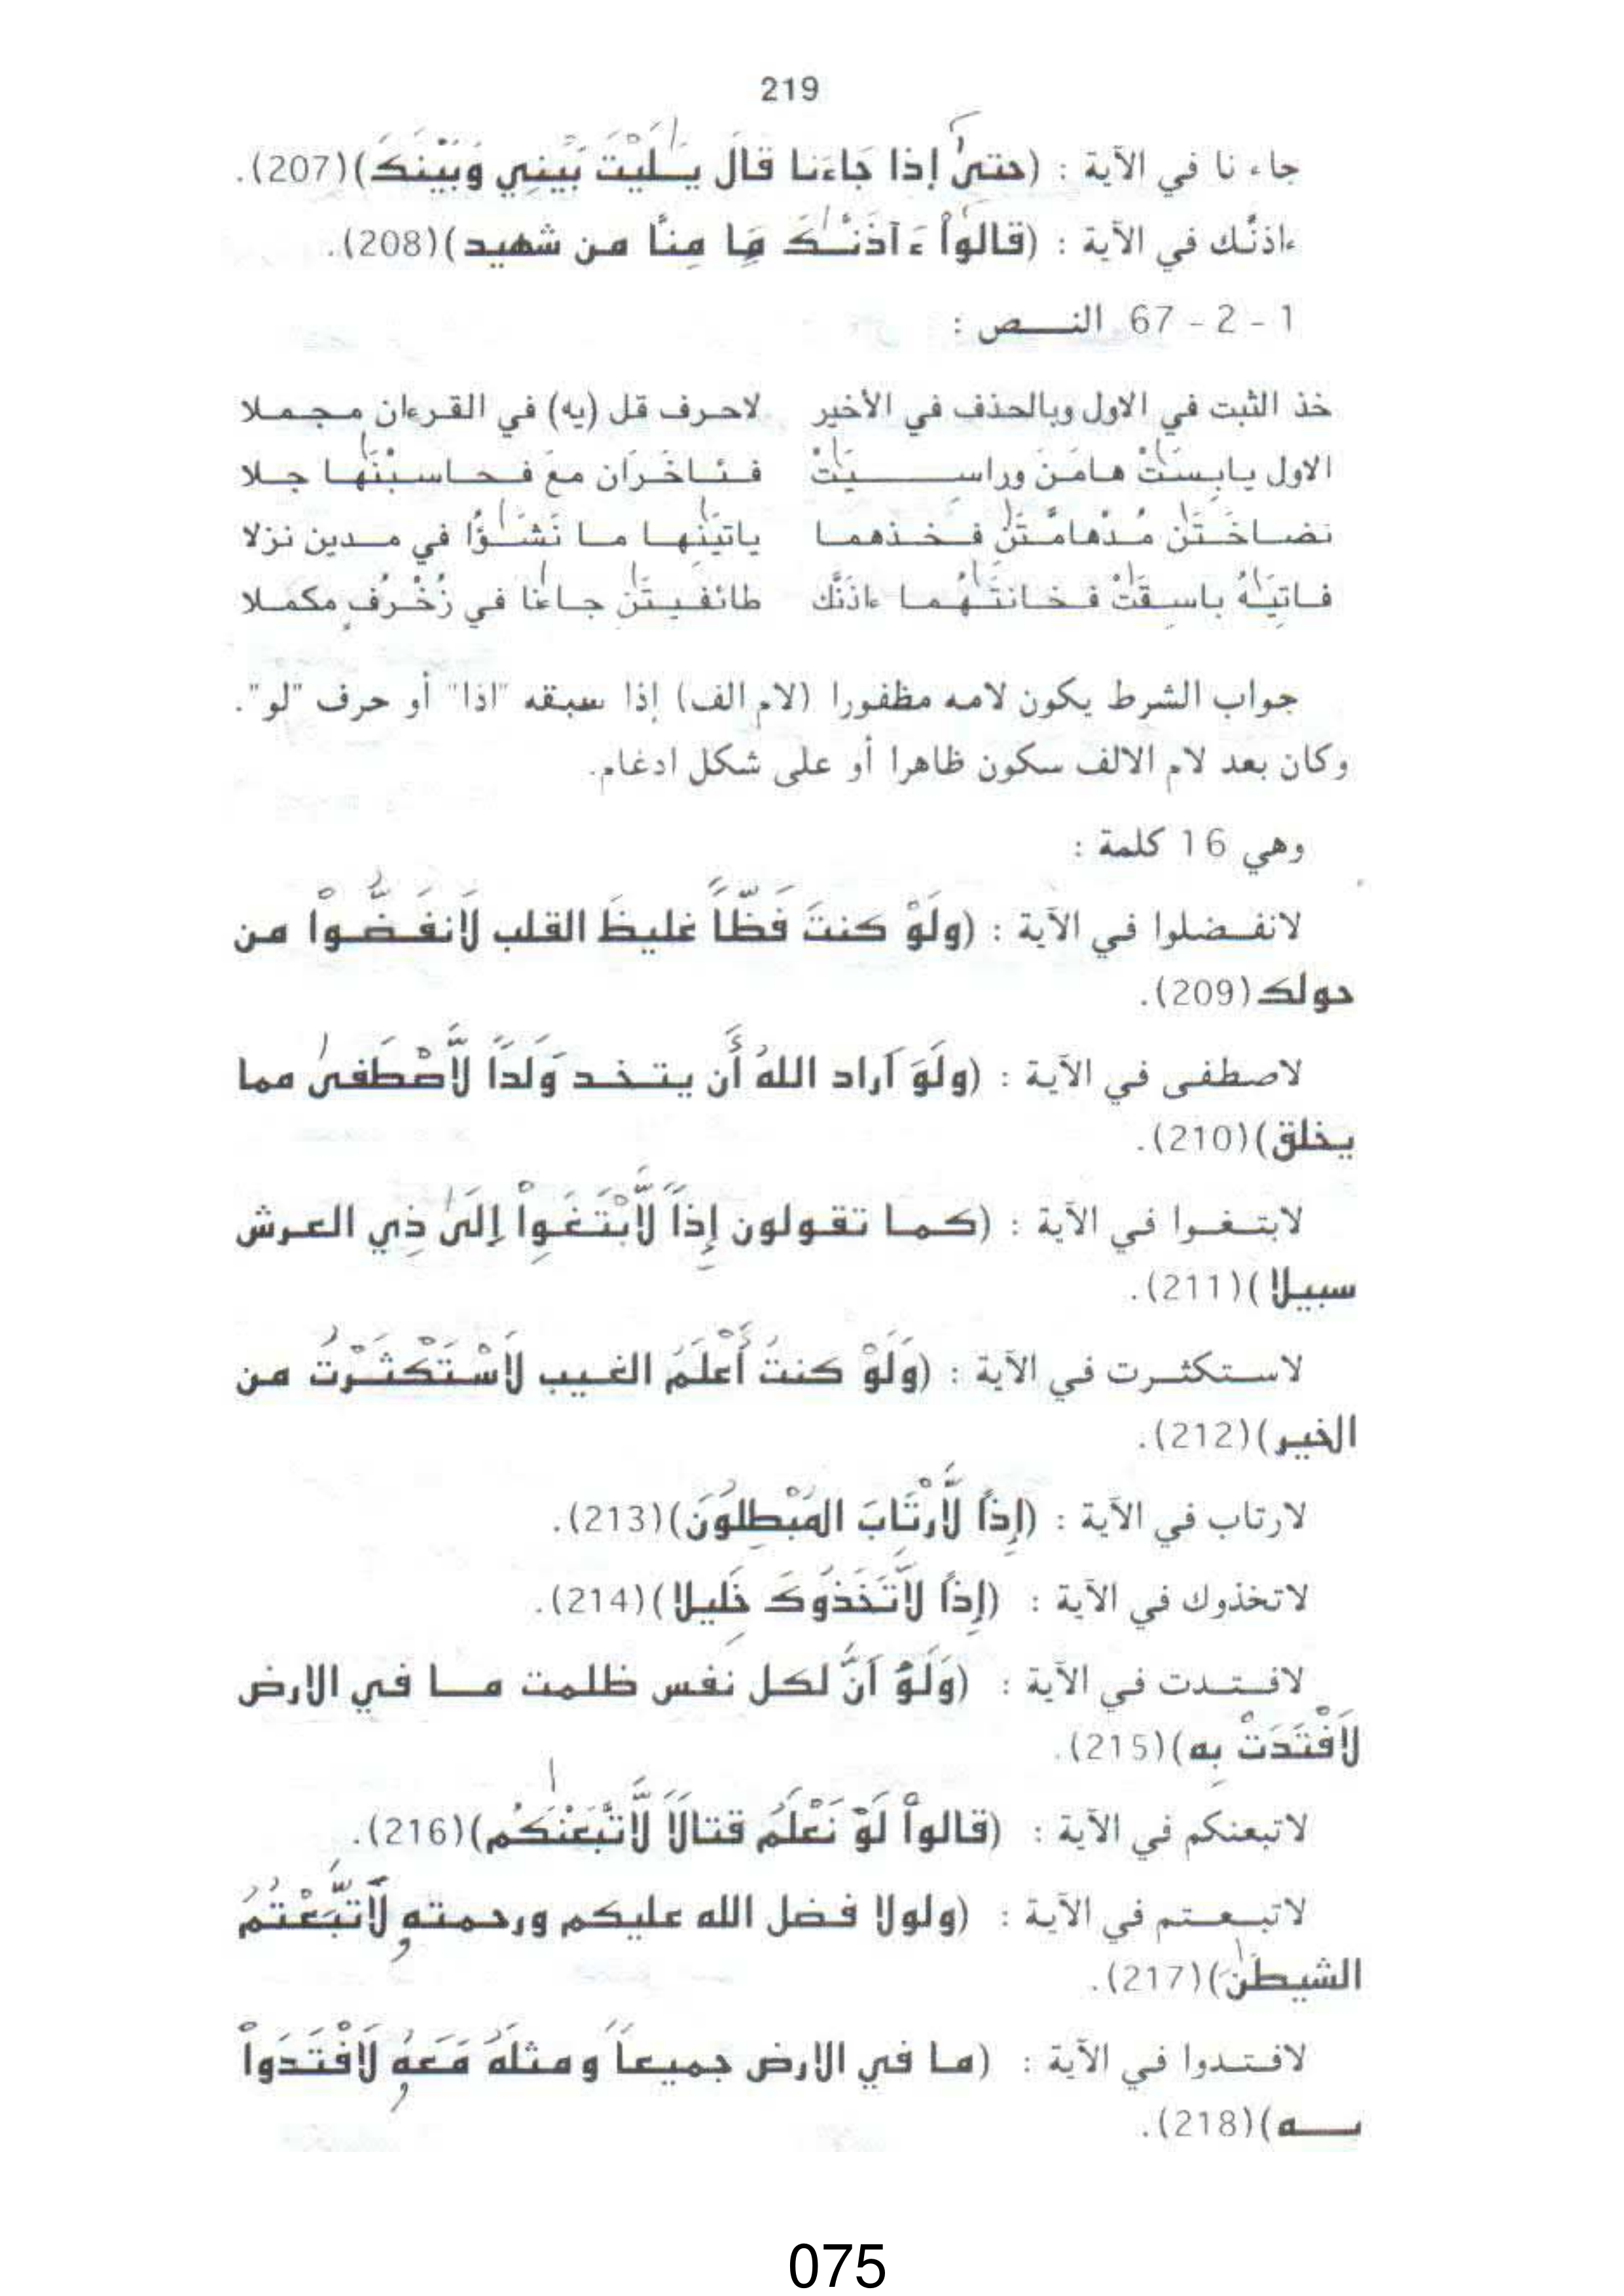 219
جاء نا في الآية : (حتىٰ إذا جَاءَنا قالَ يَـٰلَيْتَ بَيْنِي وَبَيْنَكَ)(207).
ءاذنَّـك في الآية : (قالواْ ءَ اَذَنَّـٰكَ مَا مِنَّا من شهيد)(208).
1 - 2 - 67 النـــص :
خذ الثبت في الاول وبالحذف في الأخير لاحرف قل (يه) في القرءان مجملا
الاول يابِسَٰتْ هامَـٰنَ وراسِـــيَٰتْ فـئـاخَـرَان معَ فـحـاسـبْنَٰها جـلا
نضـاخَـتَٰن مُـدْهامَّـتَٰن فـخـذهما ياتيَٰنِها ما نَشَٰـؤُا في مـدين نزلا
فـاتيَٰـهُ باسـقَٰتْ فـخـانتَٰـهُما ءاذَنَّٰك طائفـيـتَٰن جـاءَٰنا في زُخْـرُفٍ مكملا
جواب الشرط يكون لامه مظفورا (لام الف) إذا سبقه "اذا" أو حرف "لو".
وكان بعد لام الالف سكون ظاهرا أو على شكل ادغام.
وهي 16 كلمة :
لانفـضلوا في الآية : (ولَوْ كنتَ فَظّاً غليظَ القلب لَانفَـضُّـواْ من
حولك(209).
لاصطفى في الآية : (ولَوَ اَراد اللهُ أَن يتـخـد وَلَداً لَّاصْطَفىٰ مما
يخلق)(210).
لابتـغـوا في الآية : (كـمـا تقـولون إِذاً لَّابْتَغَـواْ اِلَىٰ ذِي العـرش
سبيلا)(211).
لاستكثـرت في الآية : (وَلَوْ كنتُ أَعْلَمُ الغـيب لَاسْتَكْثَـرْتُ من
الخير)(212).
لارتاب في الآية : (إِذاً لَّارْتَابَ المُبْطِلُونَ)(213).
لاتخذوك في الآية : (إِذاً لَاتَّخَذُوكَ خَلِيلا)(214).
لافـتـدت في الآية : (وَلَوَ اَنَّ لكل نفس ظلمت مـا في الارض
لَافْتَدَتْ بِه)(215).
لاتبعنكم في الآية : (قالواْ لَوْ نَعْلَمُ قتالاً لَّاتَّبَعْنَـٰكُم)(216).
لاتبـعـتم في الآية : (ولولا فـضل الله عليكم ورحمته لَاتَّبَعْتُمُ
الشيطَٰنَ)(217).
لافـتـدوا في الآية : (مـا في الارض جميعاً ومثلَهُ مَعَهُ لَافْتَدَواْ
بـــه)(218).
075